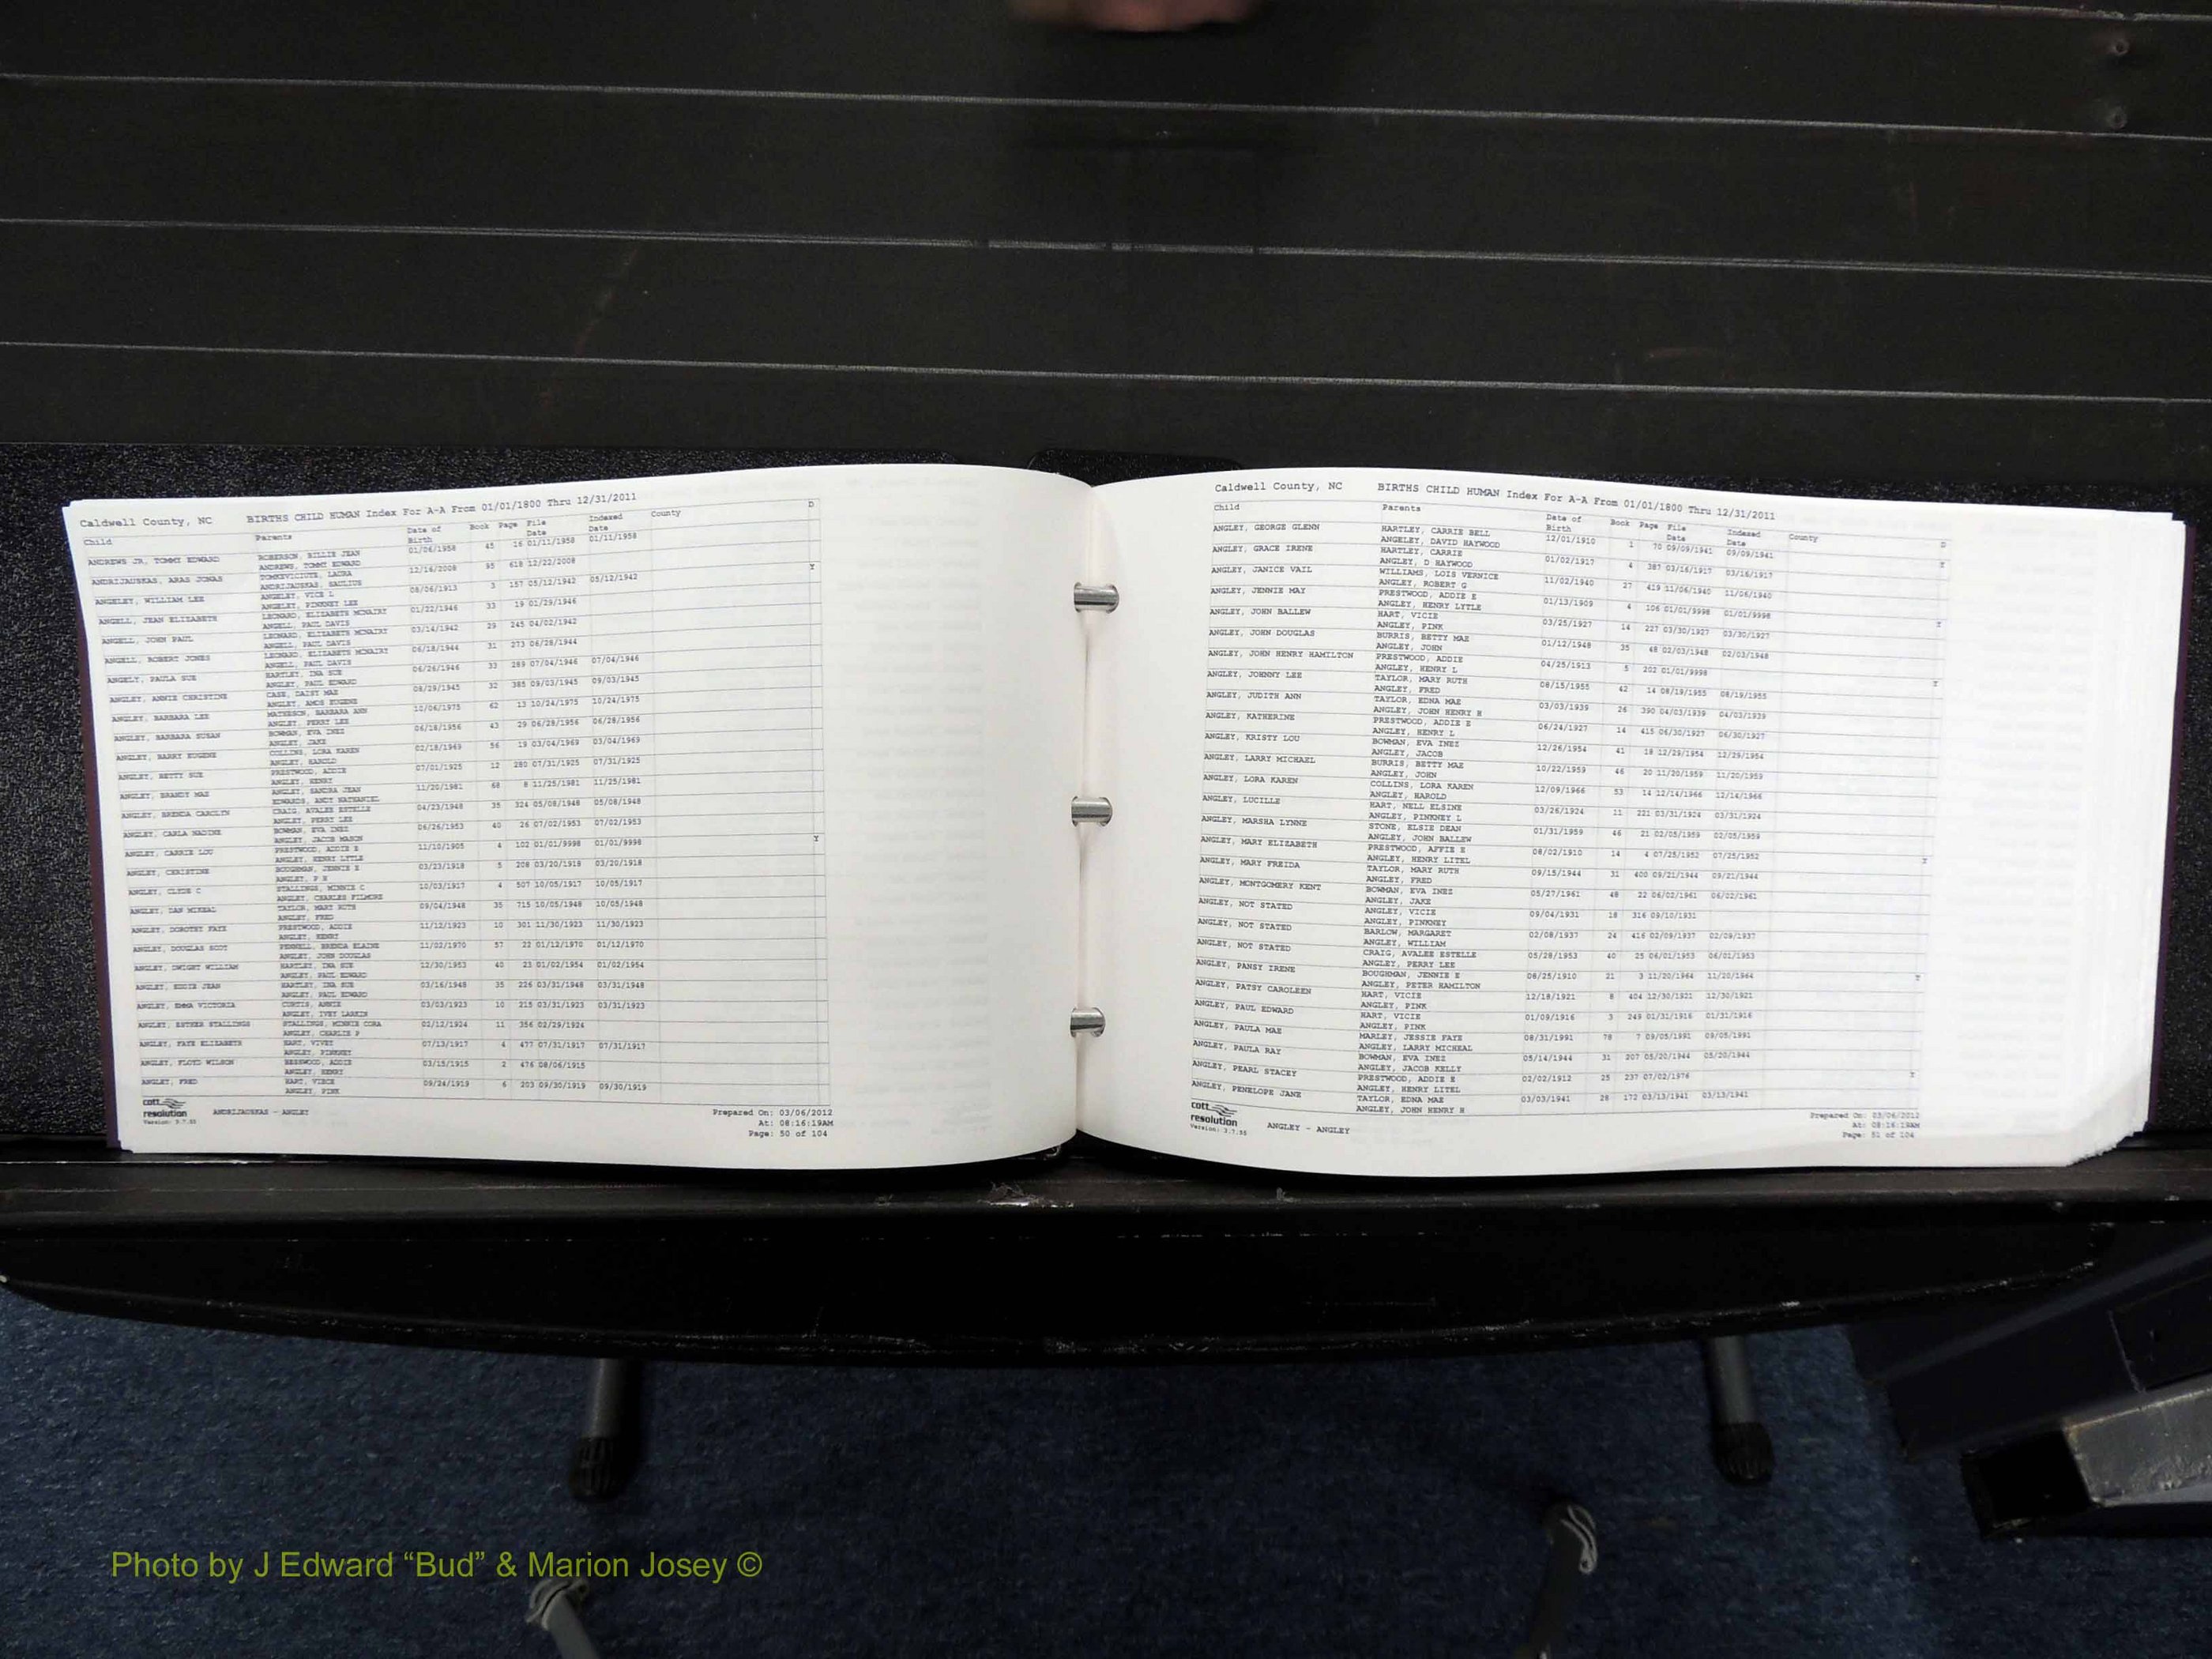 Caldwell County, NC BIRTHS CHILD HUMAN Index For A-A From 01/01/1800 Thru 12/31/2011 D
Child Parents Date of Birth Book Page File Date Indexed Date County
ANDREWS JR, TOMMY EDWARD ROBERSON, BILLIE JEAN 01/06/1958 45 16 01/11/1958 01/11/1958
ANDREWS, TOMMY EDWARD
ANDRIJAUSKAS, ARAS JONAS TOMKEVICIUTE, LAURA 12/16/2008 95 618 12/22/2008 Y
ANDRIJAUSKAS, SAULIUS
ANGELEY, WILLIAM LEE ANGELEY, VICE L 08/06/1913 3 157 05/12/1942 05/12/1942
ANGELEY, PINKNEY LEE
ANGELL, JEAN ELIZABETH LEONARD, ELIZABETH MCNAIRY 01/22/1946 33 19 01/29/1946
ANGELL, PAUL DAVIS
ANGELL, JOHN PAUL LEONARD, ELIZABETH MCNAIRY 03/14/1942 29 245 04/02/1942
ANGELL, PAUL DAVIS
ANGELL, ROBERT JONES LEONARD, ELIZABETH MCNAIRY 06/18/1944 31 273 06/28/1944
ANGELL, PAUL DAVIS
ANGELY, PAULA SUE HARTLEY, INA SUE 06/26/1946 33 289 07/04/1946 07/04/1946
ANGLEY, PAUL EDWARD
ANGLEY, ANNIE CHRISTINE CASE, DAISY MAE 08/29/1945 32 385 09/03/1945 09/03/1945
ANGLEY, AMOS EUGENE
ANGLEY, BARBARA LEE MATHESON, BARBARA ANN 10/06/1975 62 13 10/24/1975 10/24/1975
ANGLEY, PERRY LEE
ANGLEY, BARBARA SUSAN BOWMAN, EVA INEZ 06/18/1956 43 29 06/28/1956 06/28/1956
ANGLEY, JAKE
ANGLEY, BARRY EUGENE COLLINS, LORA KAREN 02/18/1969 56 19 03/04/1969 03/04/1969
ANGLEY, HAROLD
ANGLEY, BETTY SUE PRESTWOOD, ADDIE 07/01/1925 12 280 07/31/1925 07/31/1925
ANGLEY, HENRY
ANGLEY, BRANDY MAE ANGLEY, SANDRA JEAN 11/20/1981 68 8 11/25/1981 11/25/1981
EDWARDS, ANDY NATHANIEL
ANGLEY, BRENDA CAROLYN CRAIG, AVALEE ESTELLE 04/23/1948 35 324 05/08/1948 05/08/1948
ANGLEY, PERRY LEE
ANGLEY, CARLA NADINE BOWMAN, EVA INEZ 06/26/1953 40 26 07/02/1953 07/02/1953
ANGLEY, JACOB MASON
ANGLEY, CARRIE LOU PRESTWOOD, ADDIE E 11/10/1905 4 102 01/01/9998 01/01/9998 Y
ANGLEY, HENRY LYTLE
ANGLEY, CHRISTINE BOUGHMAN, JENNIE E 03/23/1918 5 208 03/20/1918 03/20/1918
ANGLEY, P H
ANGLEY, CLYDE C STALLINGS, MINNIE C 10/03/1917 4 507 10/05/1917 10/05/1917
ANGLEY, CHARLES FILMORE
ANGLEY, DAN MIKEAL TAYLOR, MARY RUTH 09/04/1948 35 715 10/05/1948 10/05/1948
ANGLEY, FRED
ANGLEY, DOROTHY FAYE PRESTWOOD, ADDIE 11/12/1923 10 301 11/30/1923 11/30/1923
ANGLEY, HENRY
ANGLEY, DOUGLAS SCOT PENNELL, BRENDA ELAINE 11/02/1970 57 22 01/12/1970 01/12/1970
ANGLEY, JOHN DOUGLAS
ANGLEY, DWIGHT WILLIAM HARTLEY, INA SUE 12/30/1953 40 23 01/02/1954 01/02/1954
ANGLEY, PAUL EDWARD
ANGLEY, EDDIE JEAN HARTLEY, INA SUE 03/16/1948 35 226 03/31/1948 03/31/1948
ANGLEY, PAUL EDWARD
ANGLEY, EMMA VICTORIA CURTIS, ANNIE 03/03/1923 10 215 03/31/1923 03/31/1923
ANGLEY, IVEY LARKIN
ANGLEY, ESTHER STALLINGS STALLINGS, MINNIE CORA 02/12/1924 11 356 02/29/1924
ANGLEY, CHARLIE P
ANGLEY, FAYE ELIZABETH HART, VIVEY 07/13/1917 4 477 07/31/1917 07/31/1917
ANGLEY, PINKNEY
ANGLEY, FLOYD WILSON ADDIE 03/15/1915 2 476 08/06/1915
ANGLEY, HENRY
ANGLEY, FRED HART, VIECE 09/24/1919 6 203 09/30/1919 09/30/1919
ANGLEY, PINK
cott resolution Version: 3.7.55
ANDRIJAUSKAS - ANGLEY
Prepared On: 03/06/2012
At: 08:16:19AM
Page: 50 of 104
Caldwell County, NC BIRTHS CHILD HUMAN Index For A-A From 01/01/1800 Thru 12/31/2011
Child Parents Date of Birth Book Page File Date Indexed Date County D
ANGLEY, GEORGE GLENN HARTLEY, CARRIE BELL 12/01/1910 1 70 09/09/1941 09/09/1941
ANGELEY, DAVID HAYWOOD
ANGLEY, GRACE IRENE HARTLEY, CARRIE 01/02/1917 4 387 03/16/1917 03/16/1917 Y
ANGLEY, D HAYWOOD
ANGLEY, JANICE VAIL WILLIAMS, LOIS VERNICE 11/02/1940 27 419 11/06/1940 11/06/1940
ANGLEY, ROBERT G
ANGLEY, JENNIE MAY PRESTWOOD, ADDIE E 01/13/1909 4 106 01/01/9998 01/01/9998
ANGLEY, HENRY LYTLE
ANGLEY, JOHN BALLEW HART, VICIE 03/25/1927 14 227 03/30/1927 03/30/1927 Y
ANGLEY, PINK
ANGLEY, JOHN DOUGLAS BURRIS, BETTY MAE 01/12/1948 35 48 02/03/1948 02/03/1948
ANGLEY, JOHN
ANGLEY, JOHN HENRY HAMILTON PRESTWOOD, ADDIE 04/25/1913 5 202 01/01/9998
ANGLEY, HENRY L
ANGLEY, JOHNNY LEE TAYLOR, MARY RUTH 08/15/1955 42 14 08/19/1955 08/19/1955 Y
ANGLEY, FRED
ANGLEY, JUDITH ANN TAYLOR, EDNA MAE 03/03/1939 26 390 04/03/1939 04/03/1939
ANGLEY, JOHN HENRY H
ANGLEY, KATHERINE PRESTWOOD, ADDIE E 06/24/1927 14 415 06/30/1927 06/30/1927
ANGLEY, HENRY L
ANGLEY, KRISTY LOU BOWMAN, EVA INEZ 12/26/1954 41 18 12/29/1954 12/29/1954
ANGLEY, JACOB
ANGLEY, LARRY MICHAEL BURRIS, BETTY MAE 10/22/1959 46 20 11/20/1959 11/20/1959
ANGLEY, JOHN
ANGLEY, LORA KAREN COLLINS, LORA KAREN 12/09/1966 53 14 12/14/1966 12/14/1966
ANGLEY, HAROLD
ANGLEY, LUCILLE HART, NELL ELSINE 03/26/1924 11 221 03/31/1924 03/31/1924
ANGLEY, PINKNEY L
ANGLEY, MARSHA LYNNE STONE, ELSIE DEAN 01/31/1959 46 21 02/05/1959 02/05/1959
ANGLEY, JOHN BALLEW
ANGLEY, MARY ELIZABETH PRESTWOOD, AFFIE E 08/02/1910 14 4 07/25/1952 07/25/1952 Y
ANGLEY, HENRY LITEL
ANGLEY, MARY FREIDA TAYLOR, MARY RUTH 09/15/1944 31 400 09/21/1944 09/21/1944
ANGLEY, FRED
ANGLEY, MONTGOMERY KENT BOWMAN, EVA INEZ 05/27/1961 48 22 06/02/1961 06/02/1961
ANGLEY, JAKE
ANGLEY, NOT STATED ANGLEY, VICIE 09/04/1931 18 316 09/10/1931
ANGLEY, PINKNEY
ANGLEY, NOT STATED BARLOW, MARGARET 02/08/1937 24 416 02/09/1937 02/09/1937
ANGLEY, WILLIAM
ANGLEY, NOT STATED CRAIG, AVALEE ESTELLE 05/28/1953 40 25 06/01/1953 06/01/1953
ANGLEY, PERRY LEE
ANGLEY, PANSY IRENE BOUGHMAN, JENNIE E 08/25/1910 21 3 11/20/1964 11/20/1964 Y
ANGLEY, PETER HAMILTON
ANGLEY, PATSY CAROLEEN HART, VICIE 12/18/1921 8 404 12/30/1921 12/30/1921
ANGLEY, PINK
ANGLEY, PAUL EDWARD HART, VICIE 01/09/1916 3 249 01/31/1916 01/31/1916
ANGLEY, PINK
ANGLEY, PAULA MAE MARLEY, JESSIE FAYE 08/31/1991 78 7 09/05/1991 09/05/1991
ANGLEY, LARRY MICHEAL
ANGLEY, PAULA RAY BOWMAN, EVA INEZ 05/14/1944 31 207 05/20/1944 05/20/1944
ANGLEY, JACOB KELLY
ANGLEY, PEARL STACEY PRESTWOOD, ADDIE E 02/02/1912 25 237 07/02/1976 Y
ANGLEY, HENRY LITEL
ANGLEY, PENELOPE JANE TAYLOR, EDNA MAE 03/03/1941 28 172 03/13/1941 03/13/1941
ANGLEY, JOHN HENRY H
cott resolution Version: 3.7.55
ANGLEY - ANGLEY
Prepared On: 03/06/2012
At: 08:16:19AM
Page: 51 of 104
Photo by J Edward “Bud” & Marion Josey ©